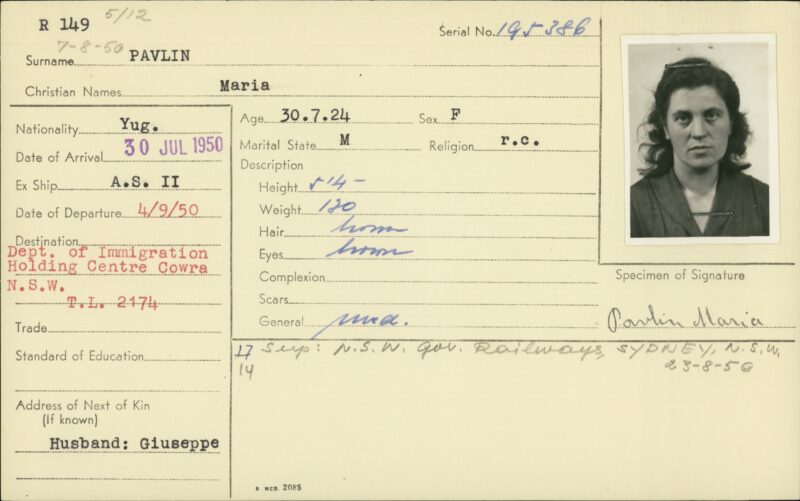 R 149 5/12
7-8-50
Serial No. 195386
Surname PAVLIN
Christian Names Maria
Nationality Yug.
Date of Arrival 30 JUL 1950
Ex Ship A.S. II
Date of Departure 4/9/50
Destination
Dept. of Immigration
Holding Centre Cowra
N.S.W.
T.L. 2174
Trade
Standard of Education
Address of Next of Kin
(If known)
Husband: Giuseppe
Age 30.7.24 Sex F
Marital State M Religion r.c.
Description
Height 514-
Weight 120
Hair brown
Eyes brown
Complexion
Scars
General med.
Specimen of Signature
Pavlin Maria
17 Sep: N.S.W. Gov. Railways, SYDNEY, N.S.W.
14 23-8-50
S. MCD. 2085